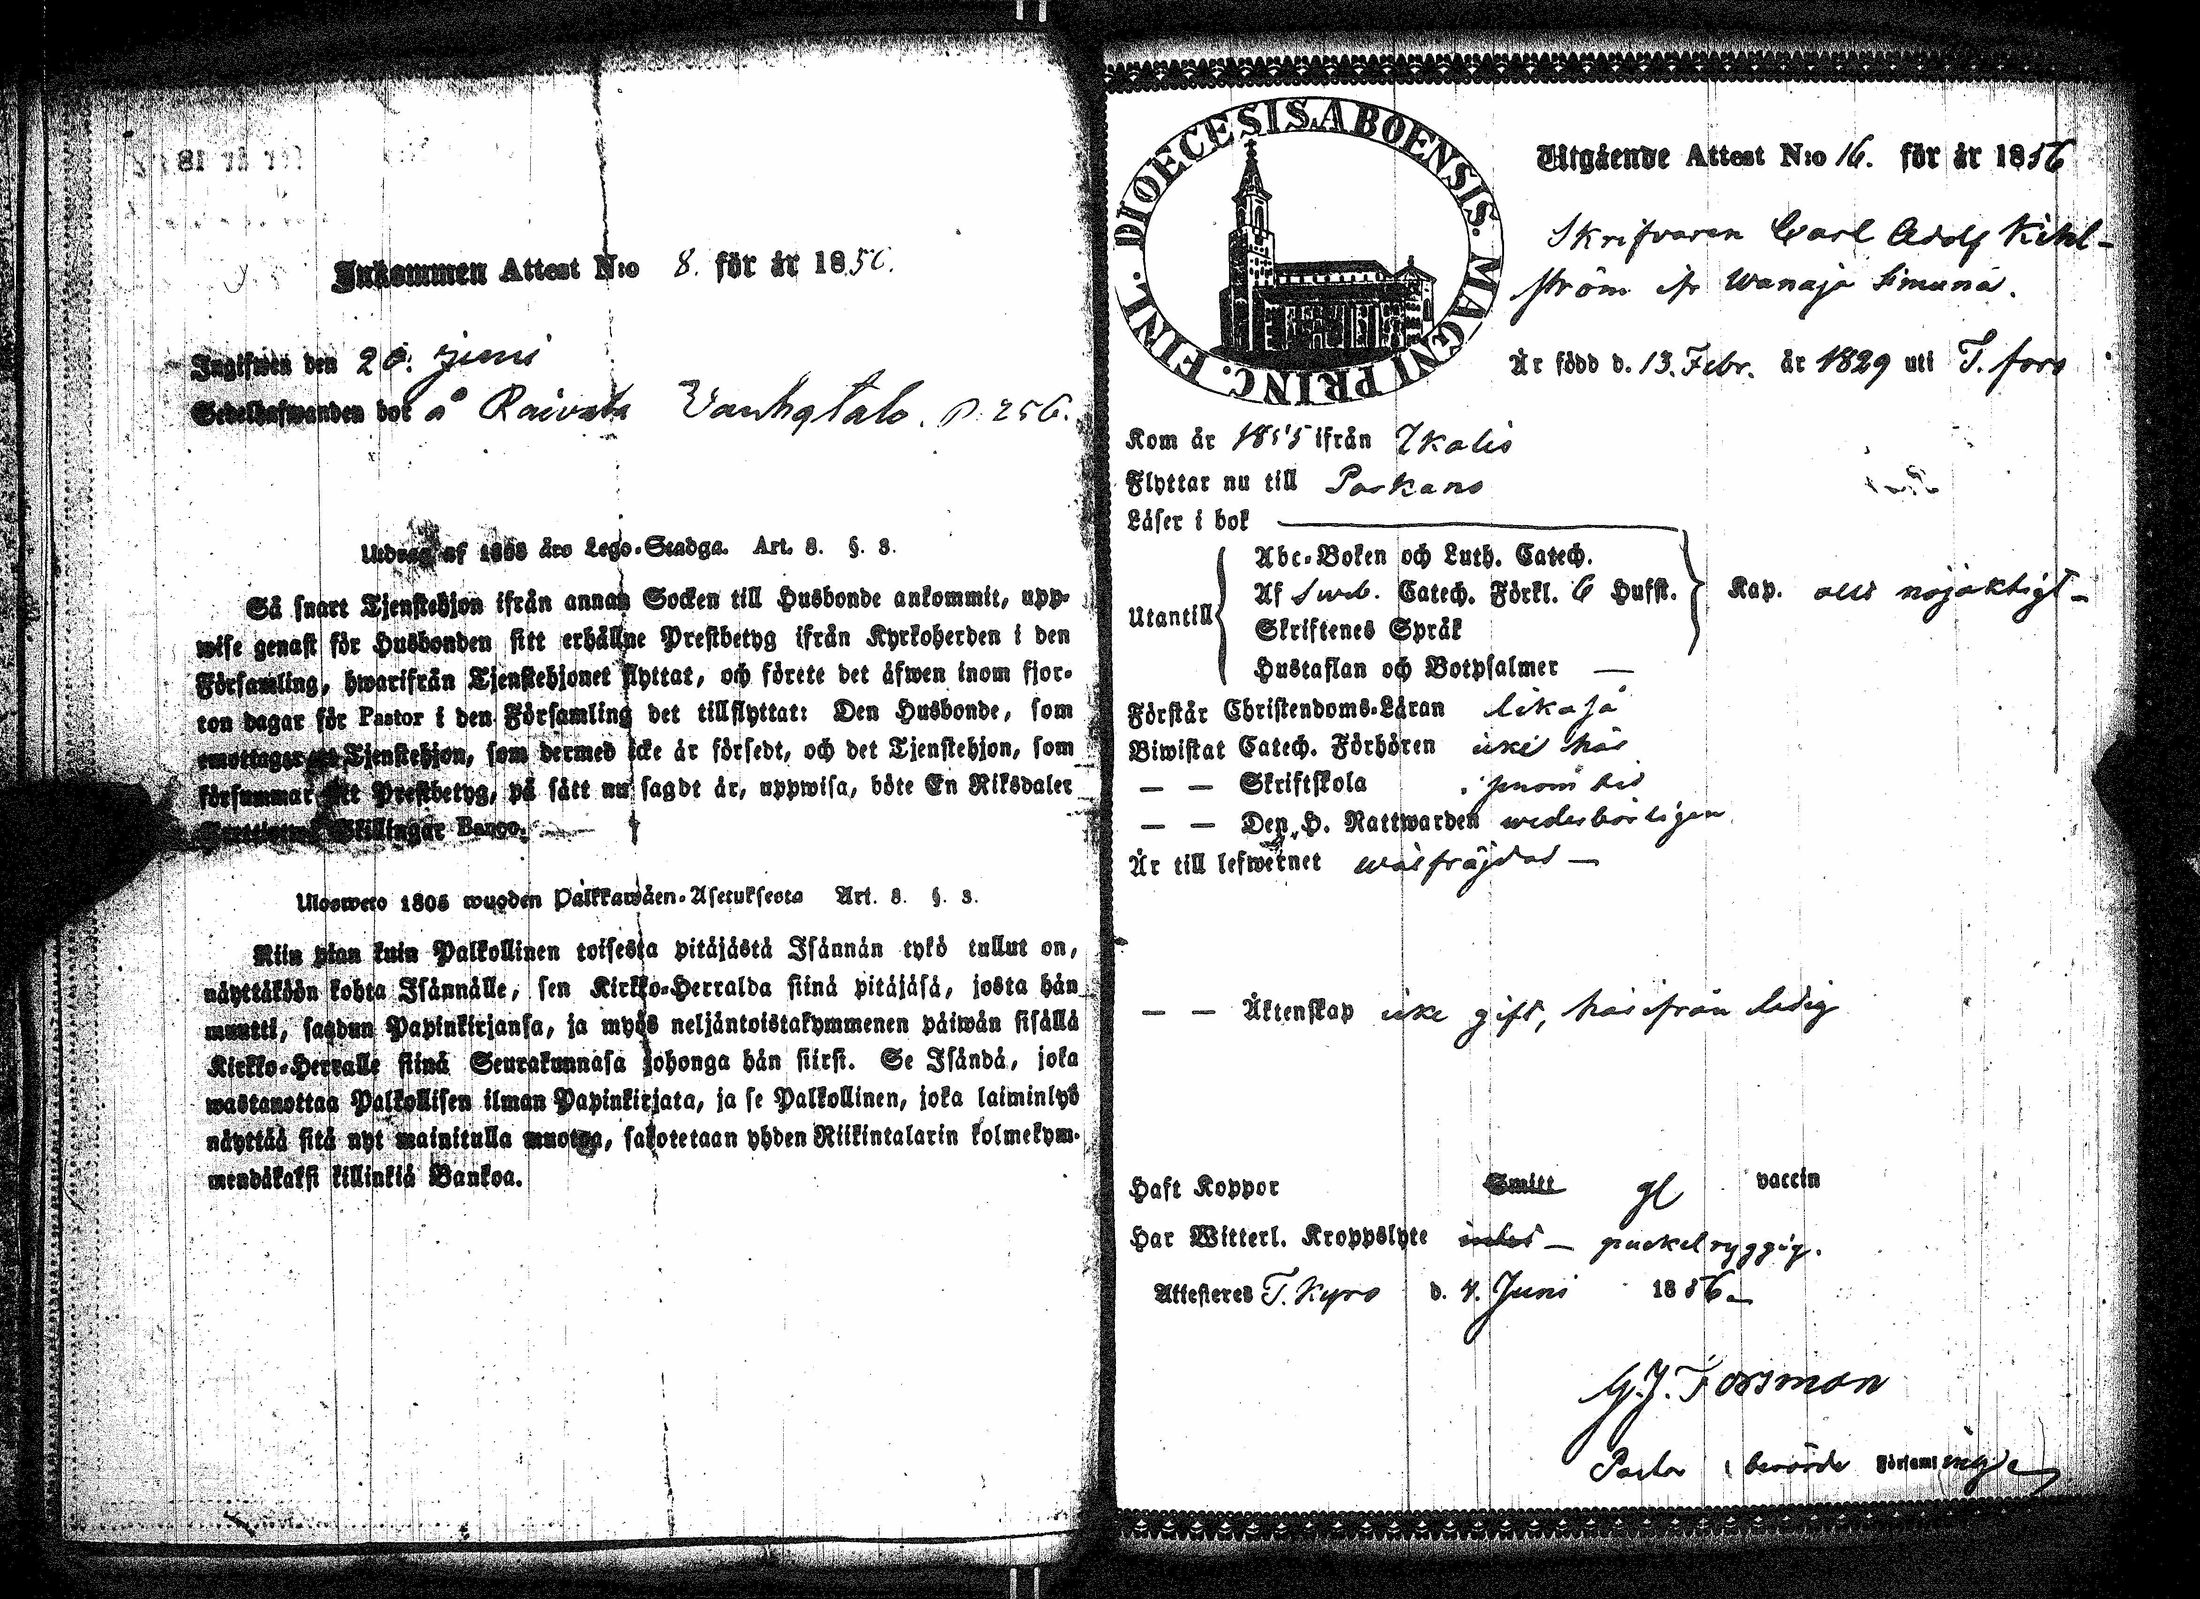 Inkommen Attest N:o 8. för år 1856.
Ingifwen den 20. Juni
Sedelhafwanden bor å Raivala Vanhatalo. p. 256.
Utdrag af 1805 års Lego-Stadga. Art. 8. §. 3.
Så snart Tjenstehjon ifrån annan Socken till Husbonde ankommit, upp-
wise genast för Husbonden sitt erhållne Prestbetyg ifrån Kyrkoherden i den
Församling, hwarifrån Tjenstehjonet flyttat, och förete det äfwen inom fjor-
ton dagar för Pastor i den Församling det tillflyttat: Den Husbonde, som
emottager Tjenstehjon, som dermed icke är försedt, och det Tjenstehjon, som
försummar att Prestbetyg, på sätt nu sagdt är, uppwisa, böte En Riksdaler
Skillingar Banco.
Ulosweto 1805 wuoden Palkkawäen-Asetuksesta Art. 8. §. 3.
Niin pian kuin Palkollinen toisesta pitäjästä Isännän tykö tullut on,
näyttäköön kohta Isännälle, sen Kirkko-Herralda siinä pitäjäsä, josta hän
muutti, saadun Papinkirjansa, ja myös neljäntoistakymmenen päiwän sisällä
Kirkko-Herralle siinä Seurakunnasa johonga hän siirsi. Se Isändä, joka
wastanottaa Palkollisen ilman Papinkirjata, ja se Palkollinen, joka laiminlyö
näyttää sitä nyt mainitulla muotoa, sakotetaan yhden Riikintalarin kolmekym-
mendäkaksi killinkiä Bankoa.
DIOECESIS ABOENSIS. MAGNI PRINC. FINL.
Utgående Attest N:o 16. för år 1856
Skrifvaren Carl Adolf Kihl-
ström ifr Wanaja Simuna.
Är född d. 13. Febr. år 1829 uti T. fors
Kom år 1855 ifrån Ikalis
Flyttar nu till Parkano
Läser i bok
Abc-Boken och Luth. Catech.
Utantill Af Sweb. Catech. Förkl. 6 Hufst. Kap. allt nöjaktigt
Skriftenes Språk
Hustaflan och Botpsalmer —
Förstår Christendoms-Läran likaså
Biwistat Catech. Förhören icke här
— — Skriftskola
— — Den H. Nattwarden wederbörligen
Är till lefwernet wälfräjdad —
— — Äktenskap icke gift, härifrån ledig
Haft Koppor Smitt gl vaccin
Har Witterl. Kroppslyte — puckelryggig.
Attesteres T. Kyro d. 4. Juni 1856
G. J. Forsman
Pastor i berörde Församling